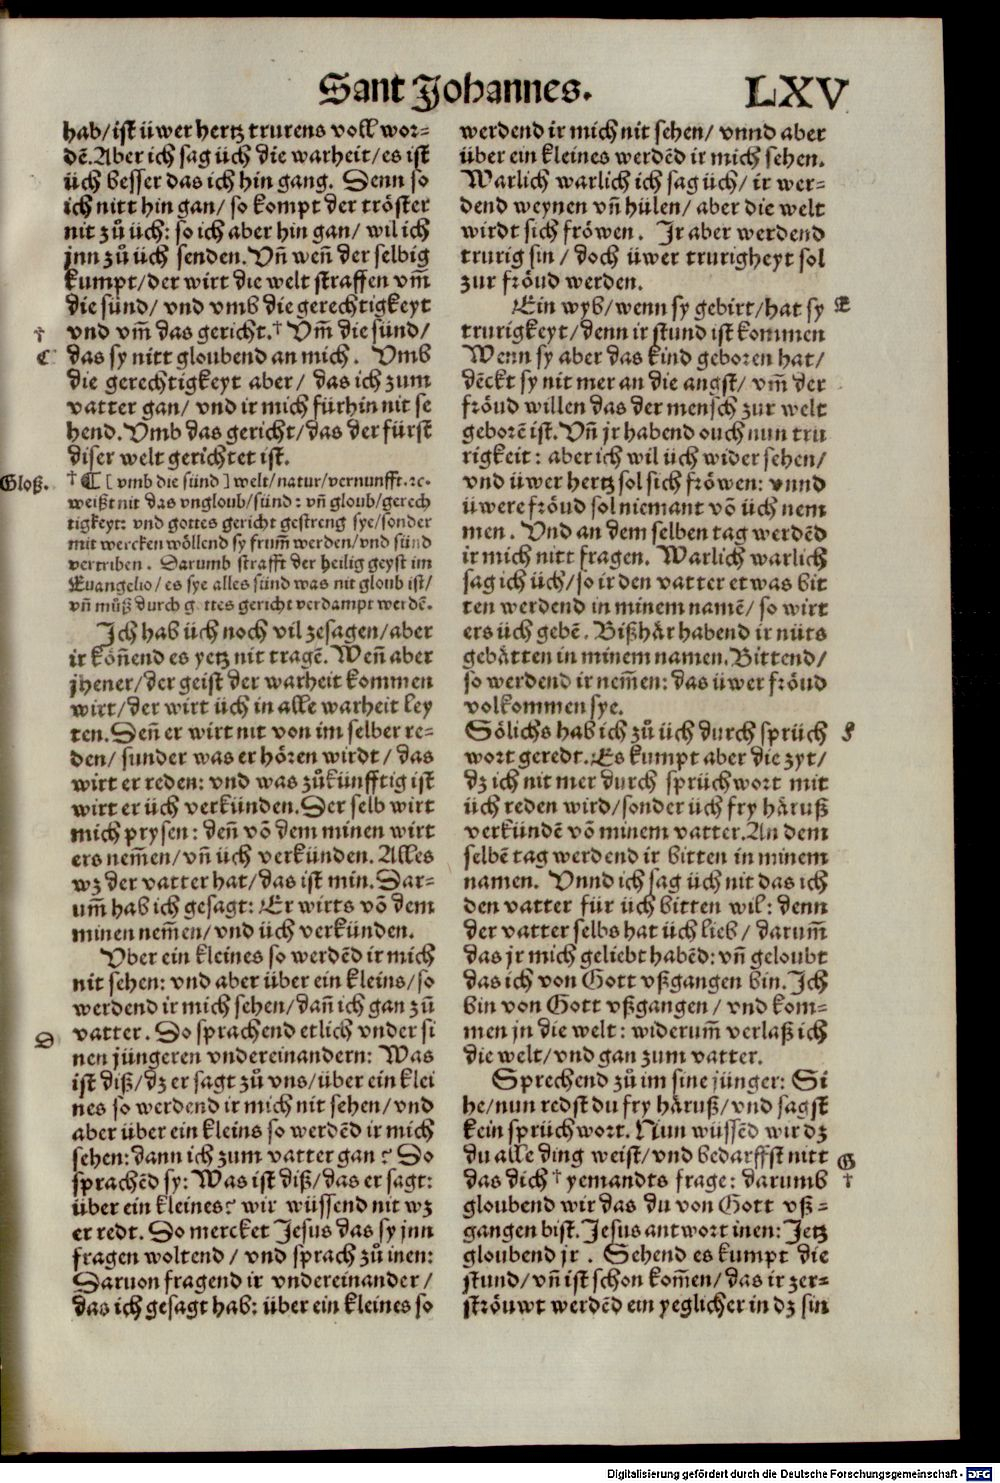 Sant Johannes. LXV
hab/ ist üwer hertz trurens voll wor⸗
dē. Aber ich sag üch die warheit/ es ist
üch besser das ich hin gang. Denn so
ich nitt hin gan/ so kompt der tröster
nit zů üch: so ich aber hin gan/ wil ich
jnn zů üch senden. Vn̄ wen̄ der selbig
kumpt/ der wirt die welt straffen vm̄
die sünd/ vnd vmb die gerechtigkeyt
† vnd vm̄ das gericht. † Vm̄ die sünd/
C das sy nitt gloubend an mich. Vmb
die gerechtigkeyt aber/ das ich zum
vatter gan/ vnd ir mich fürhin nit se
hend. Vmb das gericht/ das der fürst
diser welt gerichtet ist.
Gloß. † ¶ [vmb die sünd] welt/ natur/ vernunfft. ꝛc.
weißt nit das vngloub/ sünd: vn̄ gloub/ gerech
tigkeyt: vnd gottes gericht gestreng sye/ sonder
mit wercken wöllend sy frum̄ werden/ vnd sünd
vertriben. Darumb strafft der heilig geyst im
Euangelio/ es sye alles sünd was nit gloub ist/
vn̄ můß durch gttes gericht verdampt werdē.
Ich hab üch noch vil ze sagen/ aber
ir kön̄end es yetz nit tragē. Wen̄ aber
jhener/ der geist der warheit kommen
wirt/ der wirt üch in alle warheit ley
ten. Den̄ er wirt nit von im selber re⸗
den/ sunder was er hören wirdt/ das
wirt er reden: vnd was zůkünfftig ist
wirt er üch verkünden. Der selb wirt
mich prysen: den̄ vō dem minen wirt
ers nem̄en/ vn̄ üch verkünden. Alles
wz der vatter hat/ das ist min. Dar⸗
um̄ hab ich gesagt: Er wirts vō dem
minen nem̄en/ vnd üch verkünden.
Vber ein kleines so werdēd ir mich
nit sehen: vnd aber über ein kleins/ so
werdend ir mich sehen/ dan̄ ich gan zů
D vatter. Do sprachend etlich vnder si
nen jüngeren vndereinandern: Was
ist diß/ dz er sagt zů vns/ über ein klei
nes so werdend ir mich nit sehen/ vnd
aber über ein kleins so werdēd ir mich
sehen: dann ich zum vatter gan? Do
sprachēd sy: Was ist diß/ das er sagt:
über ein kleines? wir wüssend nit wz
er redt. Do mercket Jesus das sy jnn
fragen woltend/ vnd sprach zů inen:
Daruon fragend ir vndereinander/
das ich gesagt hab: über ein kleines so
werdend ir mich nit sehen/ vnnd aber
über ein kleines werdēd ir mich sehen.
Warlich warlich ich sag üch/ ir wer⸗
dend weynen vn̄ hülen/ aber die welt
wirdt sich fröwen. Ir aber werdend
trurig sin/ doch üwer trurigheyt sol
zur fröud werden.
Ein wyb/ wenn sy gebirt/ hat sy E
trurigkeyt/ denn ir stund ist kommen
Wenn sy aber das kind geboren hat/
dēckt sy nit mer an die angst/ vm̄ der
fröud willen das der mensch zur welt
geborē ist. Vn̄ jr habend ouch nun tru
rigkeit: aber ich wil üch wider sehen/
vnd üwer hertz sol sich fröwen: vnnd
üwere fröud sol niemant vō üch nem
men. Vnd an dem selben tag werdēd
ir mich nitt fragen. Warlich warlich
sag ich üch/ so ir den vatter etwas bit
ten werdend in minem namē/ so wirt
ers üch gebē. Bißhär habend ir nüts
gebätten in minem namen. Bittend/
so werdend ir nem̄en: das üwer fröud
volkommen sye.
Sölichs hab ich zů üch durch sprüch F
wort geredt. Es kumpt aber die zyt/
dz ich nit mer durch sprüchwort mit
üch reden wird/ sonder üch fry häruß
verkündē vō minem vatter. An dem
selbē tag werdend ir bitten in minem
namen. Vnnd ich sag üch nit das ich
den vatter für üch bitten wil: denn
der vatter selbs hat üch lieb/ darum̄
das jr mich geliebt habēd: vn̄ geloubt
das ich von Gott vßgangen bin. Ich
bin von Gott vßgangen/ vnd kom⸗
men jn die welt: widerum̄ verlaß ich
die welt/ vnd gan zum vatter.
Sprechend zů im sine jünger: Si
he/ nun redst du fry häruß/ vnd sagst
kein sprüchwort. Nun wüssēd wir dz
du alle ding weist/ vnd bedarffst nitt G
das dich † yemandts frage: darumb †
gloubend wir das du von Gott vß⸗
gangen bist. Jesus antwort inen: Jetz
gloubend jr. Sehend es kumpt die
stund/ vn̄ ist schon kom̄en/ das ir zer⸗
ströuwt werdēd ein yeglicher in dz sin
Digitalisierung gefördert durch die Deutsche Forschungsgemeinschaft - DFG